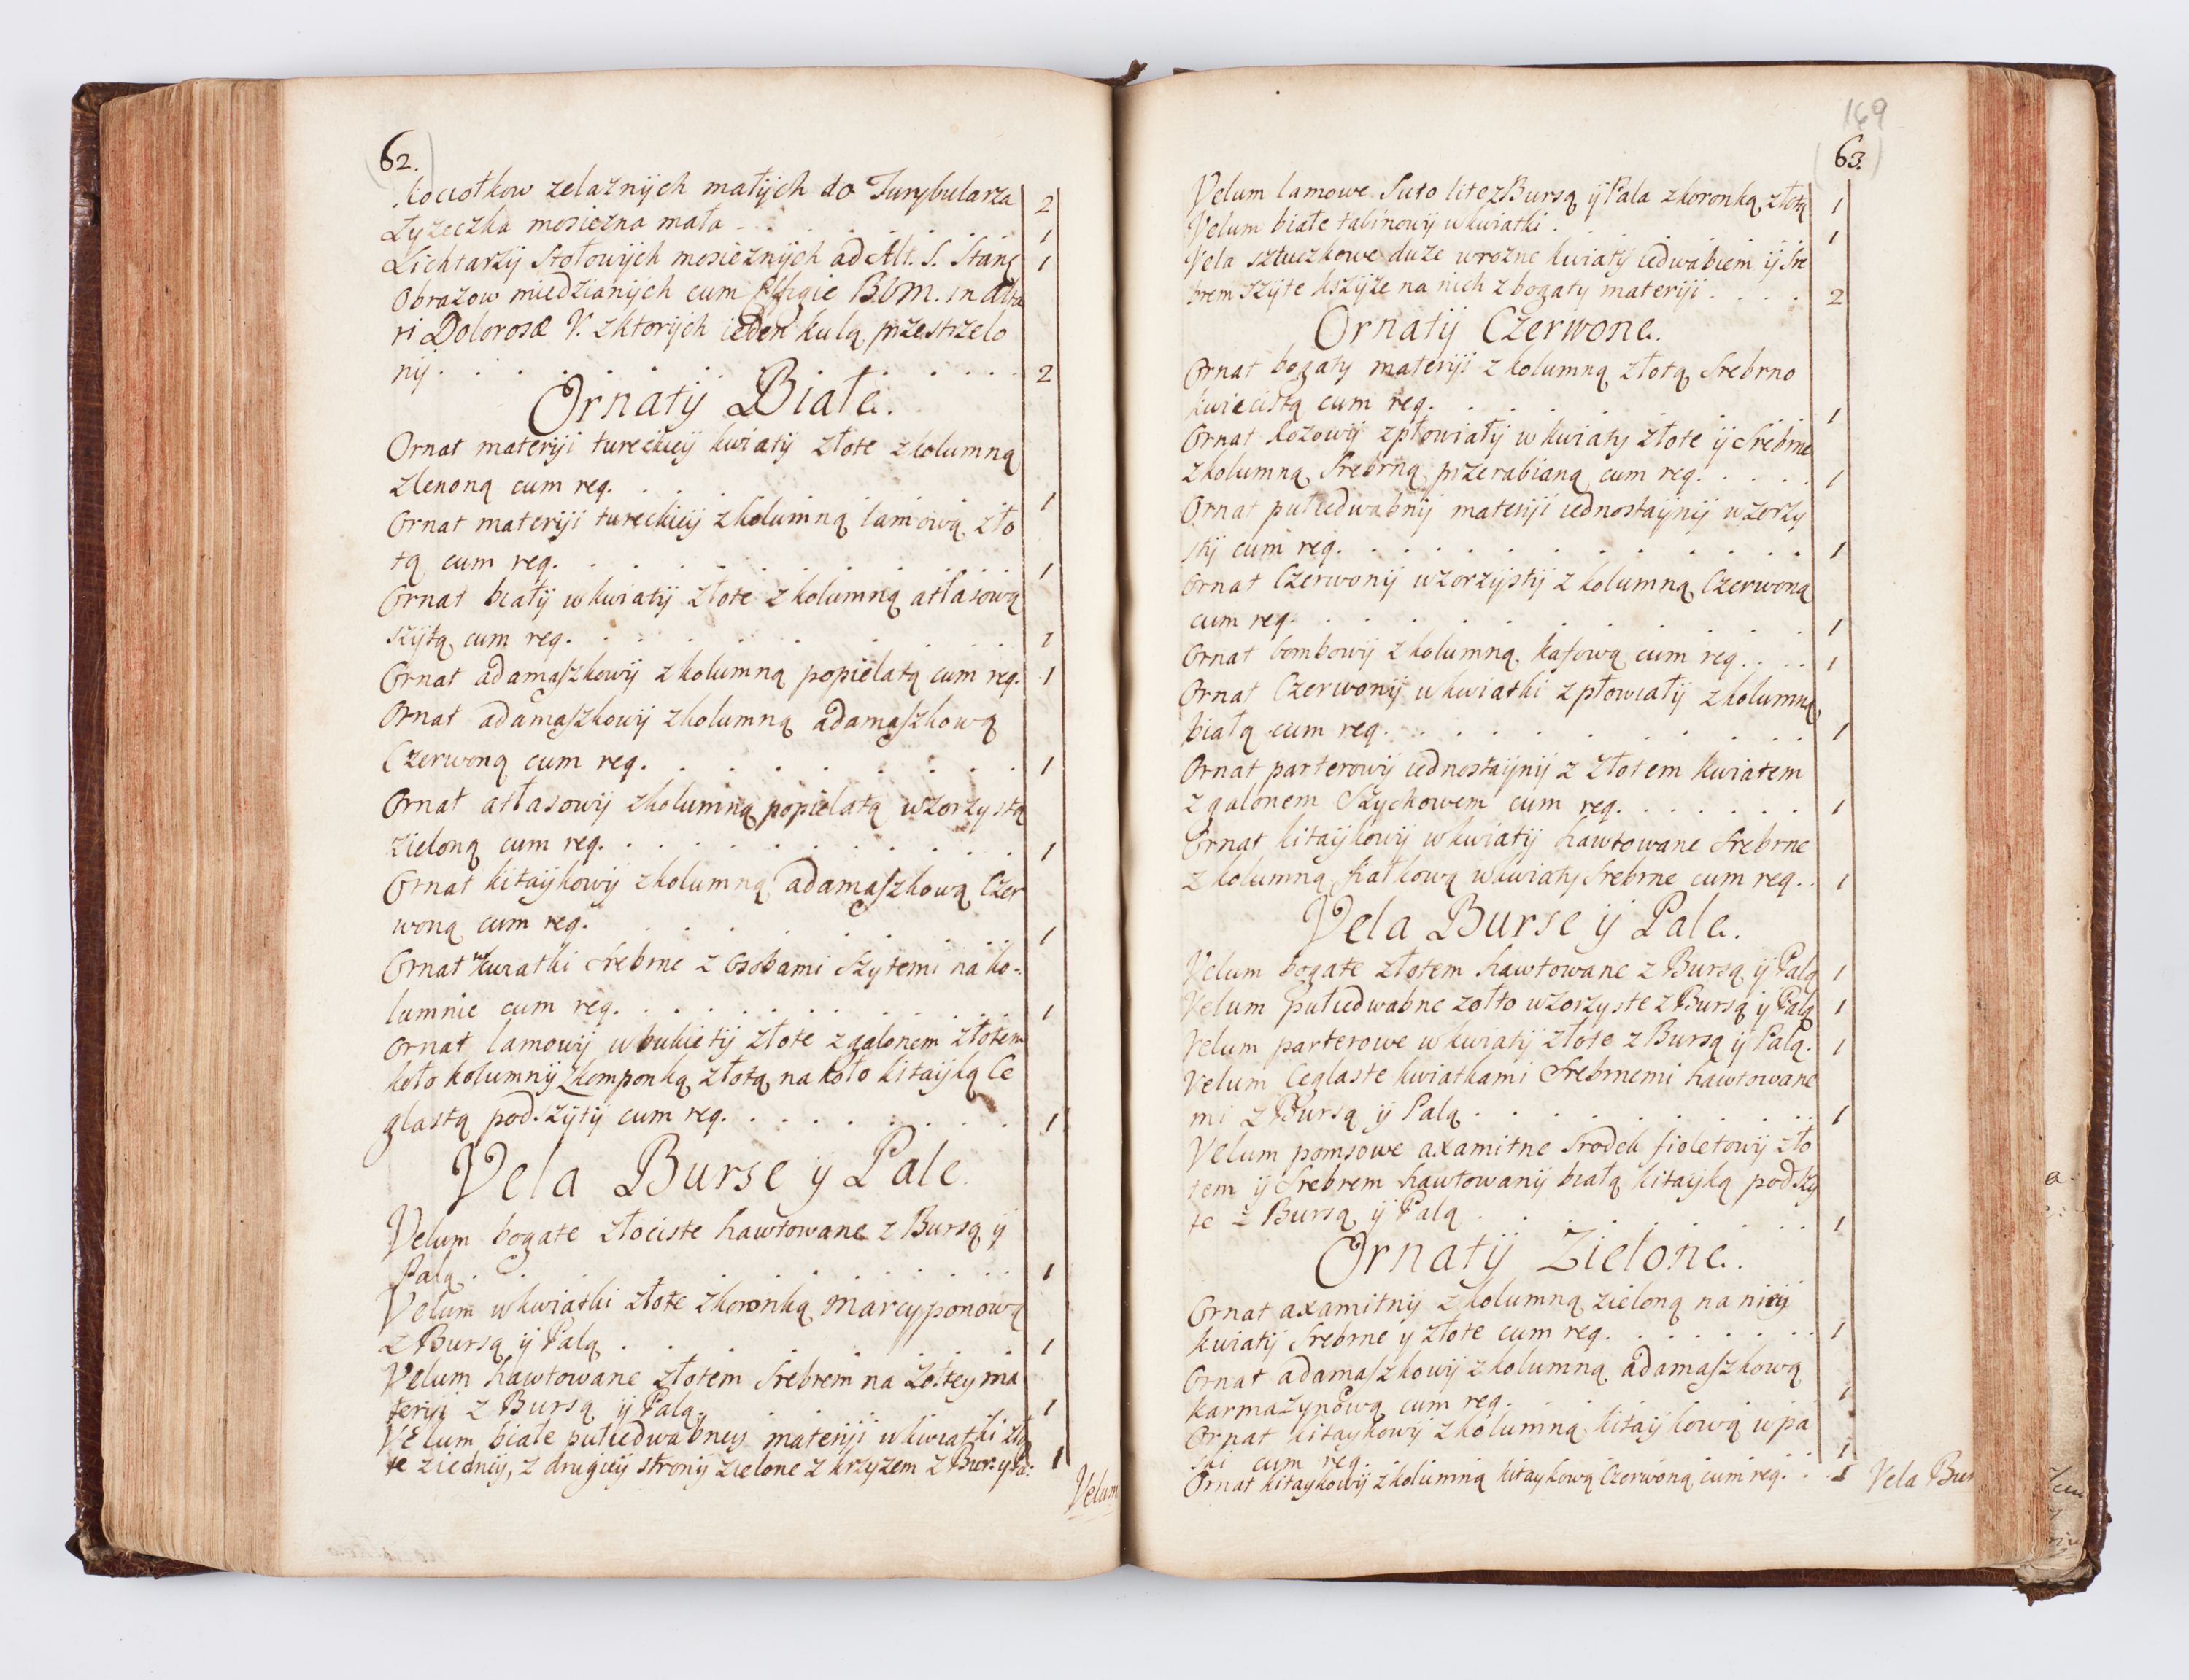 62.
kociołkow zelaznych małych do Turybularza 2
Łyzeczka mosiezna mała . . . 1
Lichtarzÿ Stołowÿch mosieznÿch ad Alt. S. Stanę 1
Obrazow miedzianÿch cum Effigie B.V.M. in Alta
ri Dolorosæ V. z ktorÿch ieden kulą przestrzelo
nÿ . . . 2
Ornatÿ Białe.
Ornat materÿi tureckieÿ kwiatÿ złote z kolumną
zlenoną cum req. . . . 1
Ornat materÿi tureckieÿ z kolumną lamową zło
tą cum req. . . . 1
Ornat białÿ w kwiatÿ złote z kolumną atłasową
szÿtą cum req. . . . 1
Ornat adamaszkowÿ z kolumną popielatą cum req. 1
Ornat adamaszkowÿ z kolumną adamaszkową
Czerwoną cum req. . . . 1
Ornat atłasowÿ z kolumną popielatą wzorzystą
zieloną cum req. . . . 1
Ornat kitaÿkowÿ z kolumną adamaszkową Czer
woną cum req. . . . 1
Ornat w kwiatki srebrne z Osobami Szytemi na ko=
lumnie cum req. . . . 1
Ornat lamowÿ w bukietÿ złote z galonem złotem
koło kolumnÿ z komponką złotą na koło kitaÿką Ce
glastą podszÿtÿ cum req. . . . 1
Vela Burse ÿ Pale.
Velum bogate złociste hawtowane z Bursą ÿ
Palą . . . 1
Velum w kwiatki złote z koronką marcypponową
z Bursą ÿ Palą . . . 1
Velum hawtowane złotem Srebrem na Zołtey ma
terÿi z Bursą ÿ Palą. . . . 1
Velum białe pułiedwabney materÿi w kwiatki zło
te z iedneÿ, z drugieÿ stronÿ zielone z krzyzem z Bur: y Pa: 1
Velum
169
63.
Velum lamowe Suto lite z Bursą ÿ Pala z koronką złotą 1
Velum białe tabinowÿ w kwiatki . . . 1
Vela sztuczkowe duze w rozne kwiatÿ iedwabiem ÿ Sre
brem szÿte kszÿze na nich z bogaty materÿi . . . . 2
Ornatÿ Czerwone.
Ornat bogaty materÿi z kolumną złotą Srebrno
kwiecistą cum req. . . . 1
Ornat Rozowÿ zpłowiałÿ w kwiatÿ złote ÿ Srebrne
z kolumną Srebrną przerabianą cum req. . . . 1
Ornat pułiedwabnÿ materÿi iednostaÿnÿ wzorzy
stÿ cum req. . . . 1
Ornat Czerwonÿ wzorzÿstÿ z kolumną Czerwoną
cum req. . . . 1
Ornat bombowÿ z kolumną kafową cum req. . . . 1
Ornat Czerwonÿ w kwiatki zpłowiałÿ z kolumną
białą cum req. . . . 1
Ornat parterowÿ iednostaÿnÿ z złotem kwiatem
z galonem Szychowem cum req. . . . 1
Ornat kitaÿkowÿ w kwiatÿ hawtowane Srebrne
z kolumną fiałkową w kwiaty Srebrne cum req. . 1
Vela Burse ÿ Pale.
Velum bogate złotem hawtowane z Bursą ÿ Palą 1
Velum pułiedwabne zołto wzorzyste z Bursą ÿ Palą 1
Velum parterowe w kwiatÿ złote z Bursą ÿ Palą. 1
Velum Ceglaste kwiatkami Srebrnemi hawtowane
mi z Bursą ÿ Palą . . . 1
Velum pomsowe axamitne Srodek fioletowÿ zło
tem ÿ Srebrem hawtowanÿ białą kitaÿką podszy
te z Bursą ÿ Palą . . . 1
Ornatÿ Zielone.
Ornat axamitnÿ z kolumną zieloną na nieÿ
kwiatÿ Srebrne y złote cum req. . . . 1
Ornat adamaszkowÿ z kolumną adamaszkową
karmazynową cum req. . . . 1
Ornat kitaykowÿ z kolumną kitaÿkową w pa
ski cum req. . . . 1
Ornat kitaykowÿ z kolumną kitaykową Czerwoną cum req. . . 1
Vela Bur